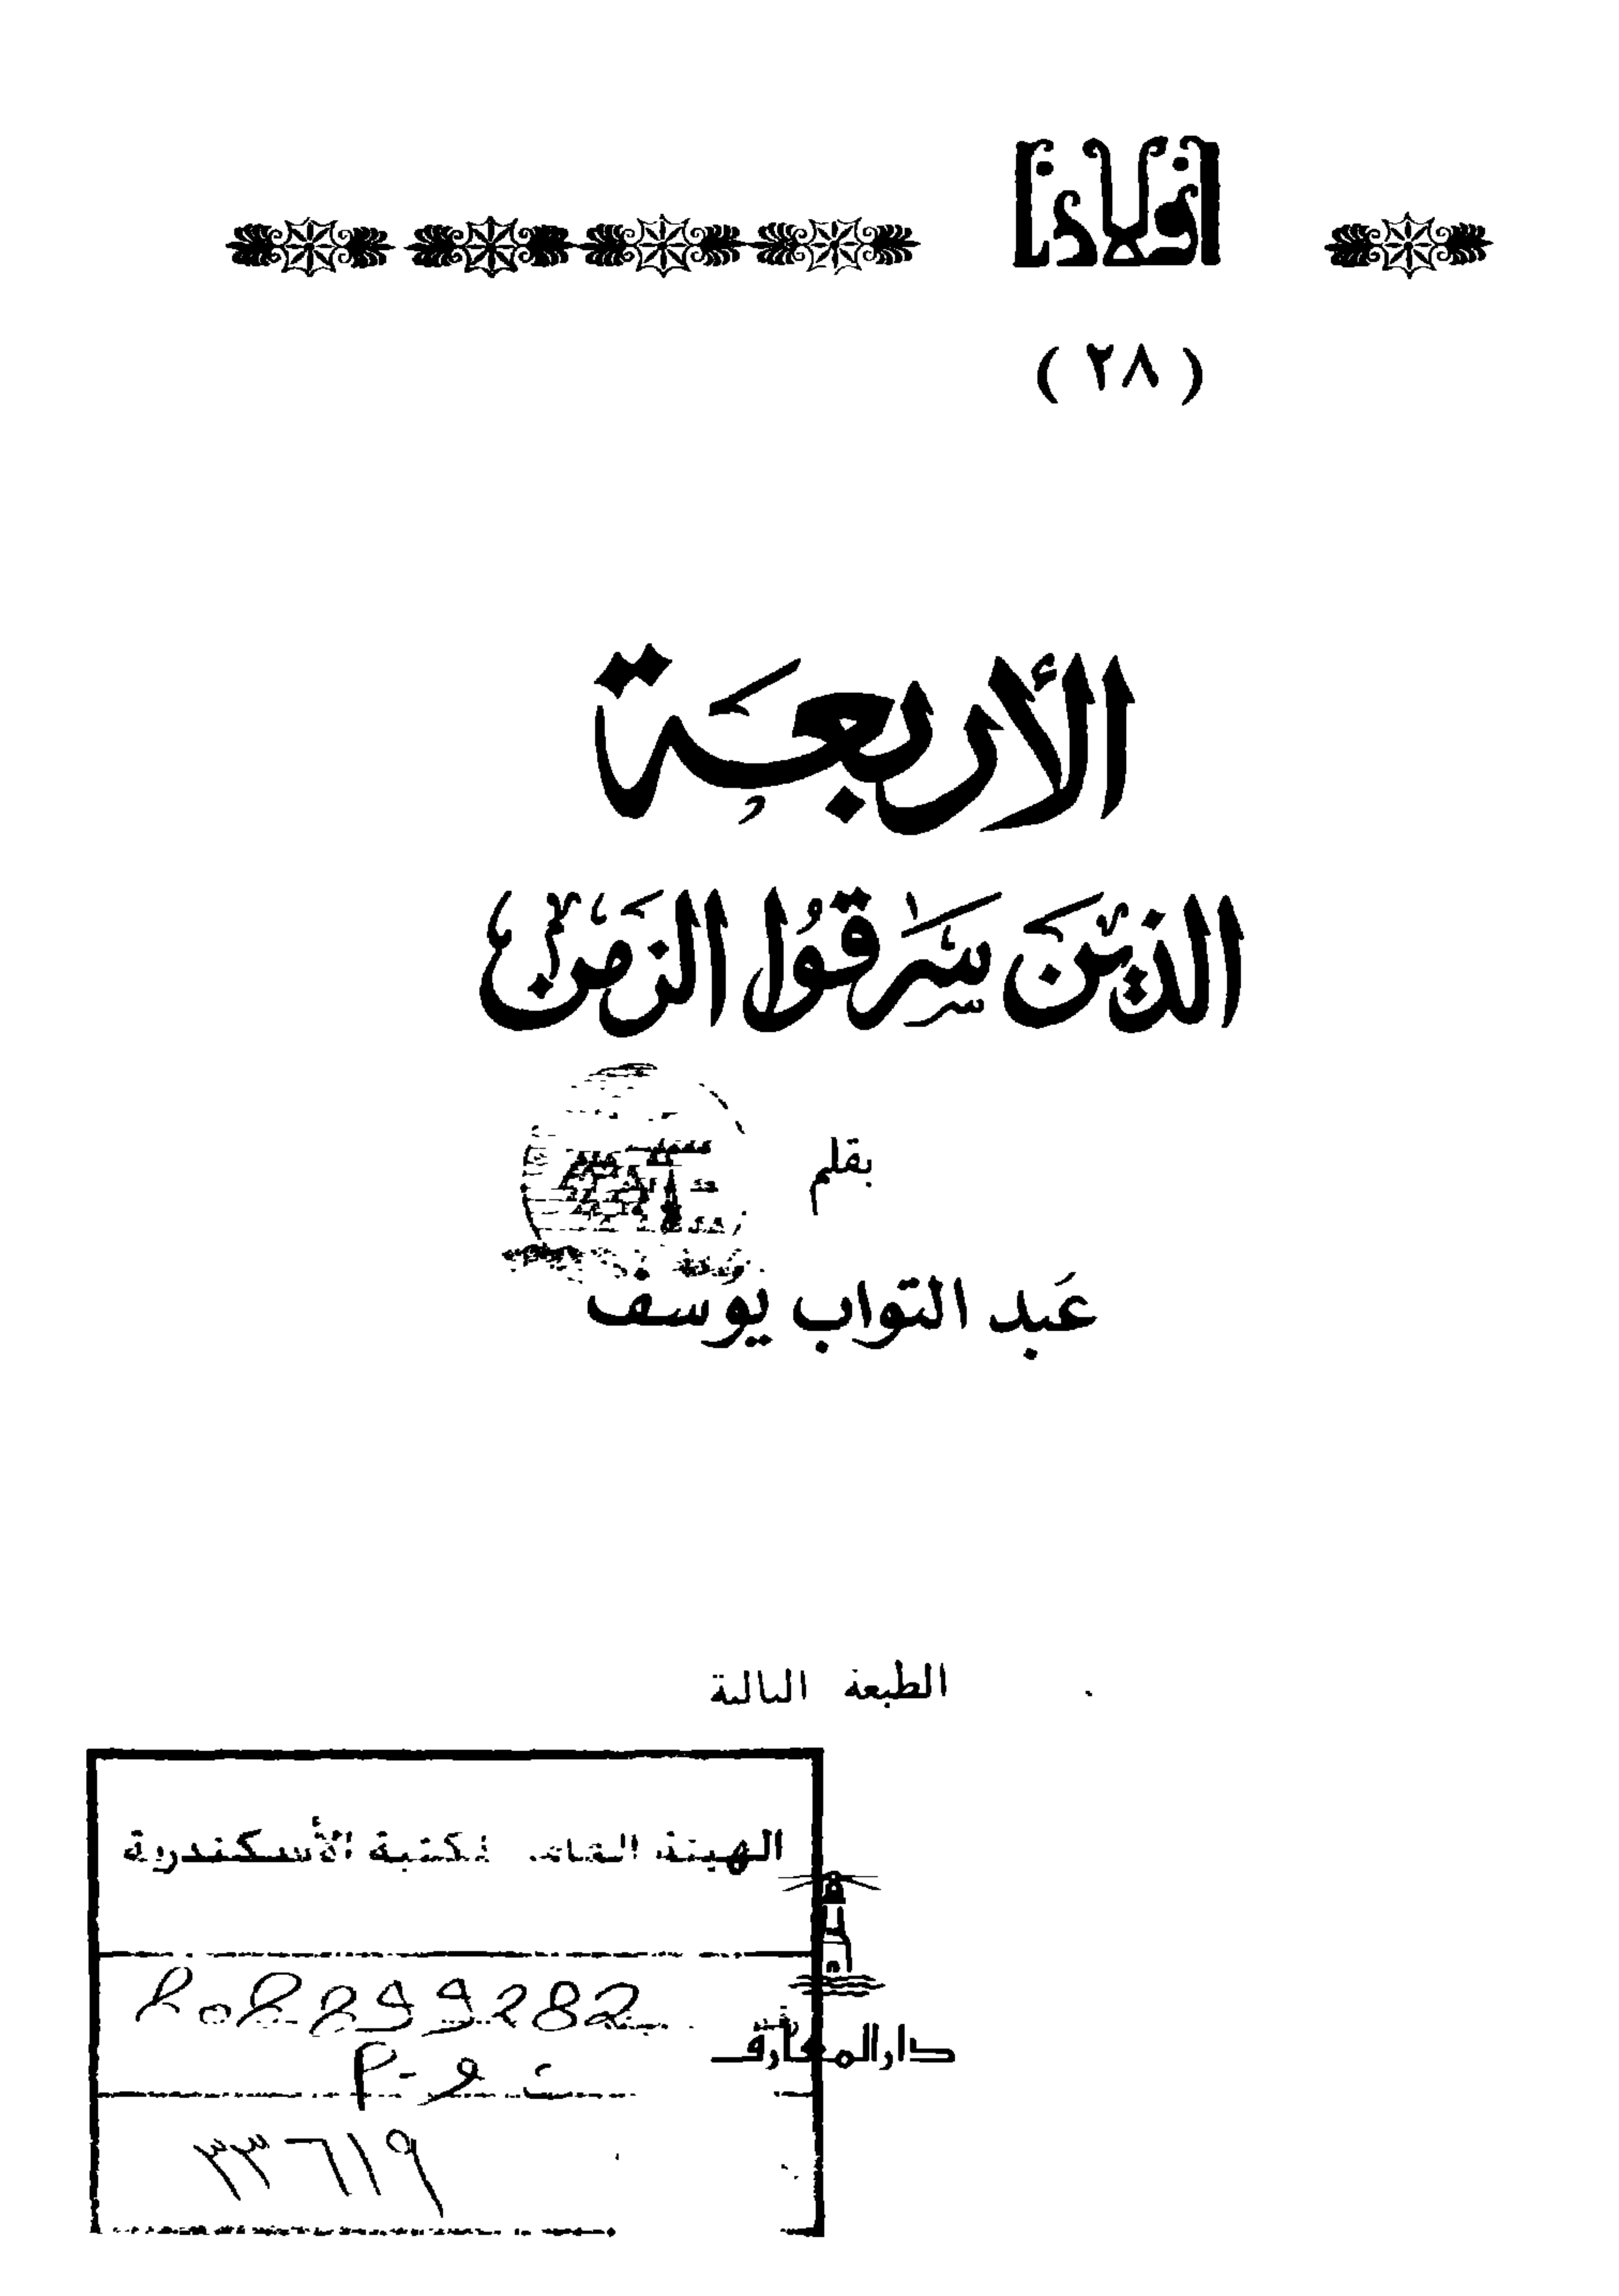 أولادنا
( ٢٨ )
الأربعَة
الذين سَرَقوُا الزمَن
بقلم
عَبد التواب يوسف
الطبعة الثالثة
الهيئة العامة لمكتبة الأسكندرية
دار المعارف
ت و - P
٣٣٦١٩